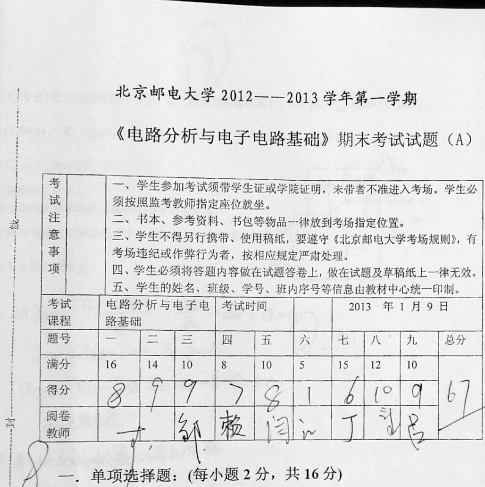 北京邮电大学 2012——2013 学年第一学期
《电路分析与电子电路基础》期末考试试题（A）
考试注意事项
一、学生参加考试须带学生证或学院证明，未带者不准进入考场。学生必
须按照监考教师指定座位就坐。
二、书本、参考资料、书包等物品一律放到考场指定位置。
三、学生不得另行携带、使用稿纸，要遵守《北京邮电大学考场规则》，有
考场违纪或作弊行为者，按相应规定严肃处理。
四、学生必须将答题内容做在试题答卷上，做在试题及草稿纸上一律无效。
五、学生的姓名、班级、学号、班内序号等信息由教材中心统一印制。
考试课程 电路分析与电子电路基础 考试时间 2013 年 1 月 9 日
题号 一 二 三 四 五 六 七 八 九 总分
满分 16 14 10 8 10 5 15 12 10
得分 8 9 9 7 8 1 6 10 9 67
阅卷教师 邹 赖 闫 丁 吕
级
封
8
一．单项选择题：(每小题 2 分，共 16 分)